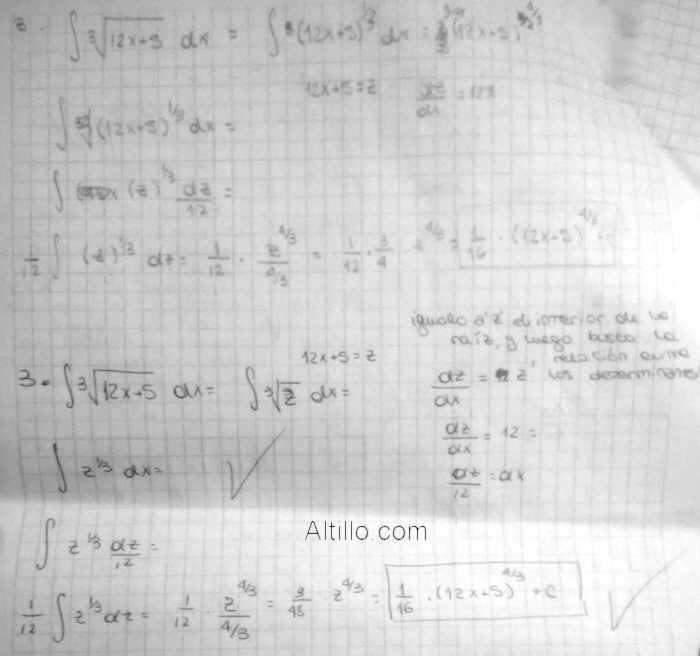 3. ∫ ∛(12x+5) dx = ∫ (12x+5)^1/3 dx = (12x+5)^4/3
12x+5=z dz/dx = 12
∫ (12x+5)^1/3 dx =
∫ (z)^1/3 dz/12 =
1/12 ∫ (z)^1/3 dz = 1/12 · z^4/3 / 4/3 = 1/12 · 3/4 z^4/3 = 1/16 · (12x+5)^4/3 + c
igualo a 'z' el interior de la
raíz, y luego busco la
relación entre
los
12x+5=z
3. ∫ ∛(12x+5) dx = ∫ ∛z dx =
dz/dx = 12
dz/dx = 12 =
∫ z^1/3 dx =
dz/12 = dx
Altillo.com
∫ z^1/3 dz/12 =
1/12 ∫ z^1/3 dz = 1/12 · z^4/3 / 4/3 = 3/48 · z^4/3 = 1/16 · (12x+5)^4/3 + C